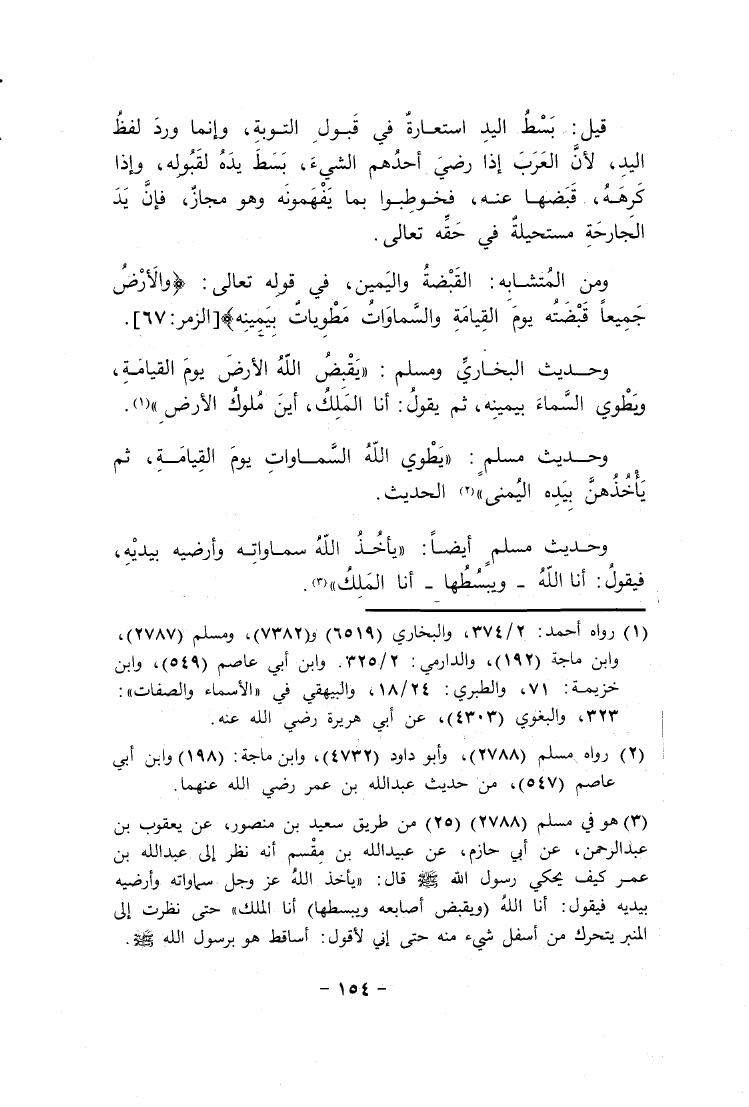 قيل: بَسْطُ اليدِ استعـارةٌ في قَبـول التـوبةِ، وإنما وردَ لفظُ
اليدِ، لأنَّ العَرَبَ إذا رضيَ أحدُهم الشيءَ، بَسَطَ يدَهُ لقَبُوله، وإذا
كَرِهَـهُ، قَبَضهـا عنـه، فخـوطِبـوا بما يَفْهَمونَه وهو مجازٌ، فإنَّ يَدَ
الجارحَةِ مستحيلةٌ في حَقِّه تعالى.
ومن المُتشـابه: القَبْضةُ واليَمين، في قولِه تعالى: ﴿والأرْضُ
جَميعاً قَبْضَتُه يومَ القِيامَةِ والسَّماوَاتُ مَطْوِياتٌ بيَمِينِه﴾[الزمر: ٦٧].
وحــديث البخـاريِّ ومسلم: «يَقْبِضُ اللّهُ الأرضَ يومَ القيامَـةِ،
ويَطْوي السَّماءَ بيمينِه، ثم يقولُ: أنا المَلِكُ، أينَ مُلوكُ الأرض»(١).
وحــديث مسلمٍ: «يَطْوي اللّهُ السَّمــاواتِ يومَ القِيامَــةِ، ثم
يَأْخُذُهنَّ بيَدِه اليُمنى»(٢) الحديث.
وحـديث مسلمٍ أيضـاً: «يأخُـذُ اللّهُ سمـاواتِـه وأرضِيه بيديْهِ،
فيقولُ: أنا اللّهُ - ويبسُطُها - أنا المَلِكُ»(٣).
(١) رواه أحمد: ٣٧٤/٢، والبخاري (٦٥١٩) و(٧٣٨٢)، ومسلم (٢٧٨٧)،
وابن ماجة (١٩٢)، والدارمي: ٣٢٥/٢. وابن أبي عاصم (٥٤٩)، وابن
خزيمـة: ٧١، والطبري: ١٨/٢٤، والبيهقي في «الأسماء والصفات»:
٣٢٣، والبغوي (٤٣٠٣)، عن أبي هريرة رضي الله عنه.
(٢) رواه مسلم (٢٧٨٨)، وأبو داود (٤٧٣٢)، وابن ماجة: (١٩٨) وابن أبي
عاصم (٥٤٧)، من حديث عبدالله بن عمر رضي الله عنهما.
(٣) هو في مسلم (٢٧٨٨) (٢٥) من طريق سعيد بن منصور، عن يعقوب بن
عبدالرحمن، عن أبي حازم، عن عبيدالله بن مِقْسم أنه نظر إلى عبدالله بن
عمـر كيف يحكي رسول الله ﷺ قال: «يأخذ اللهُ عز وجل سماواته وأرضيه
بيديه فيقول: أنا اللهُ (ويقبض أصابعه ويبسطها) أنا الملك» حتى نظرت إلى
المنبر يتحرك من أسفل شيء منه حتى إني لأقول: أساقط هو برسول الله ﷺ.
- ١٥٤ -